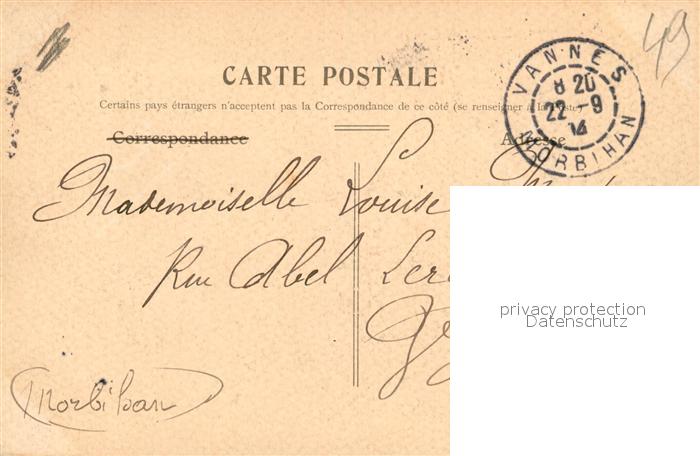 49
CARTE POSTALE
Certains pays étrangers n'acceptent pas la Correspondance de ce côté (se renseigner à la Poste)
Correspondance
Adresse
VANNES
8 20
22 - 9
14
MORBIHAN
Mademoiselle Louise
Rue Abel
privacy protection
Datenschutz
(Morbihan)